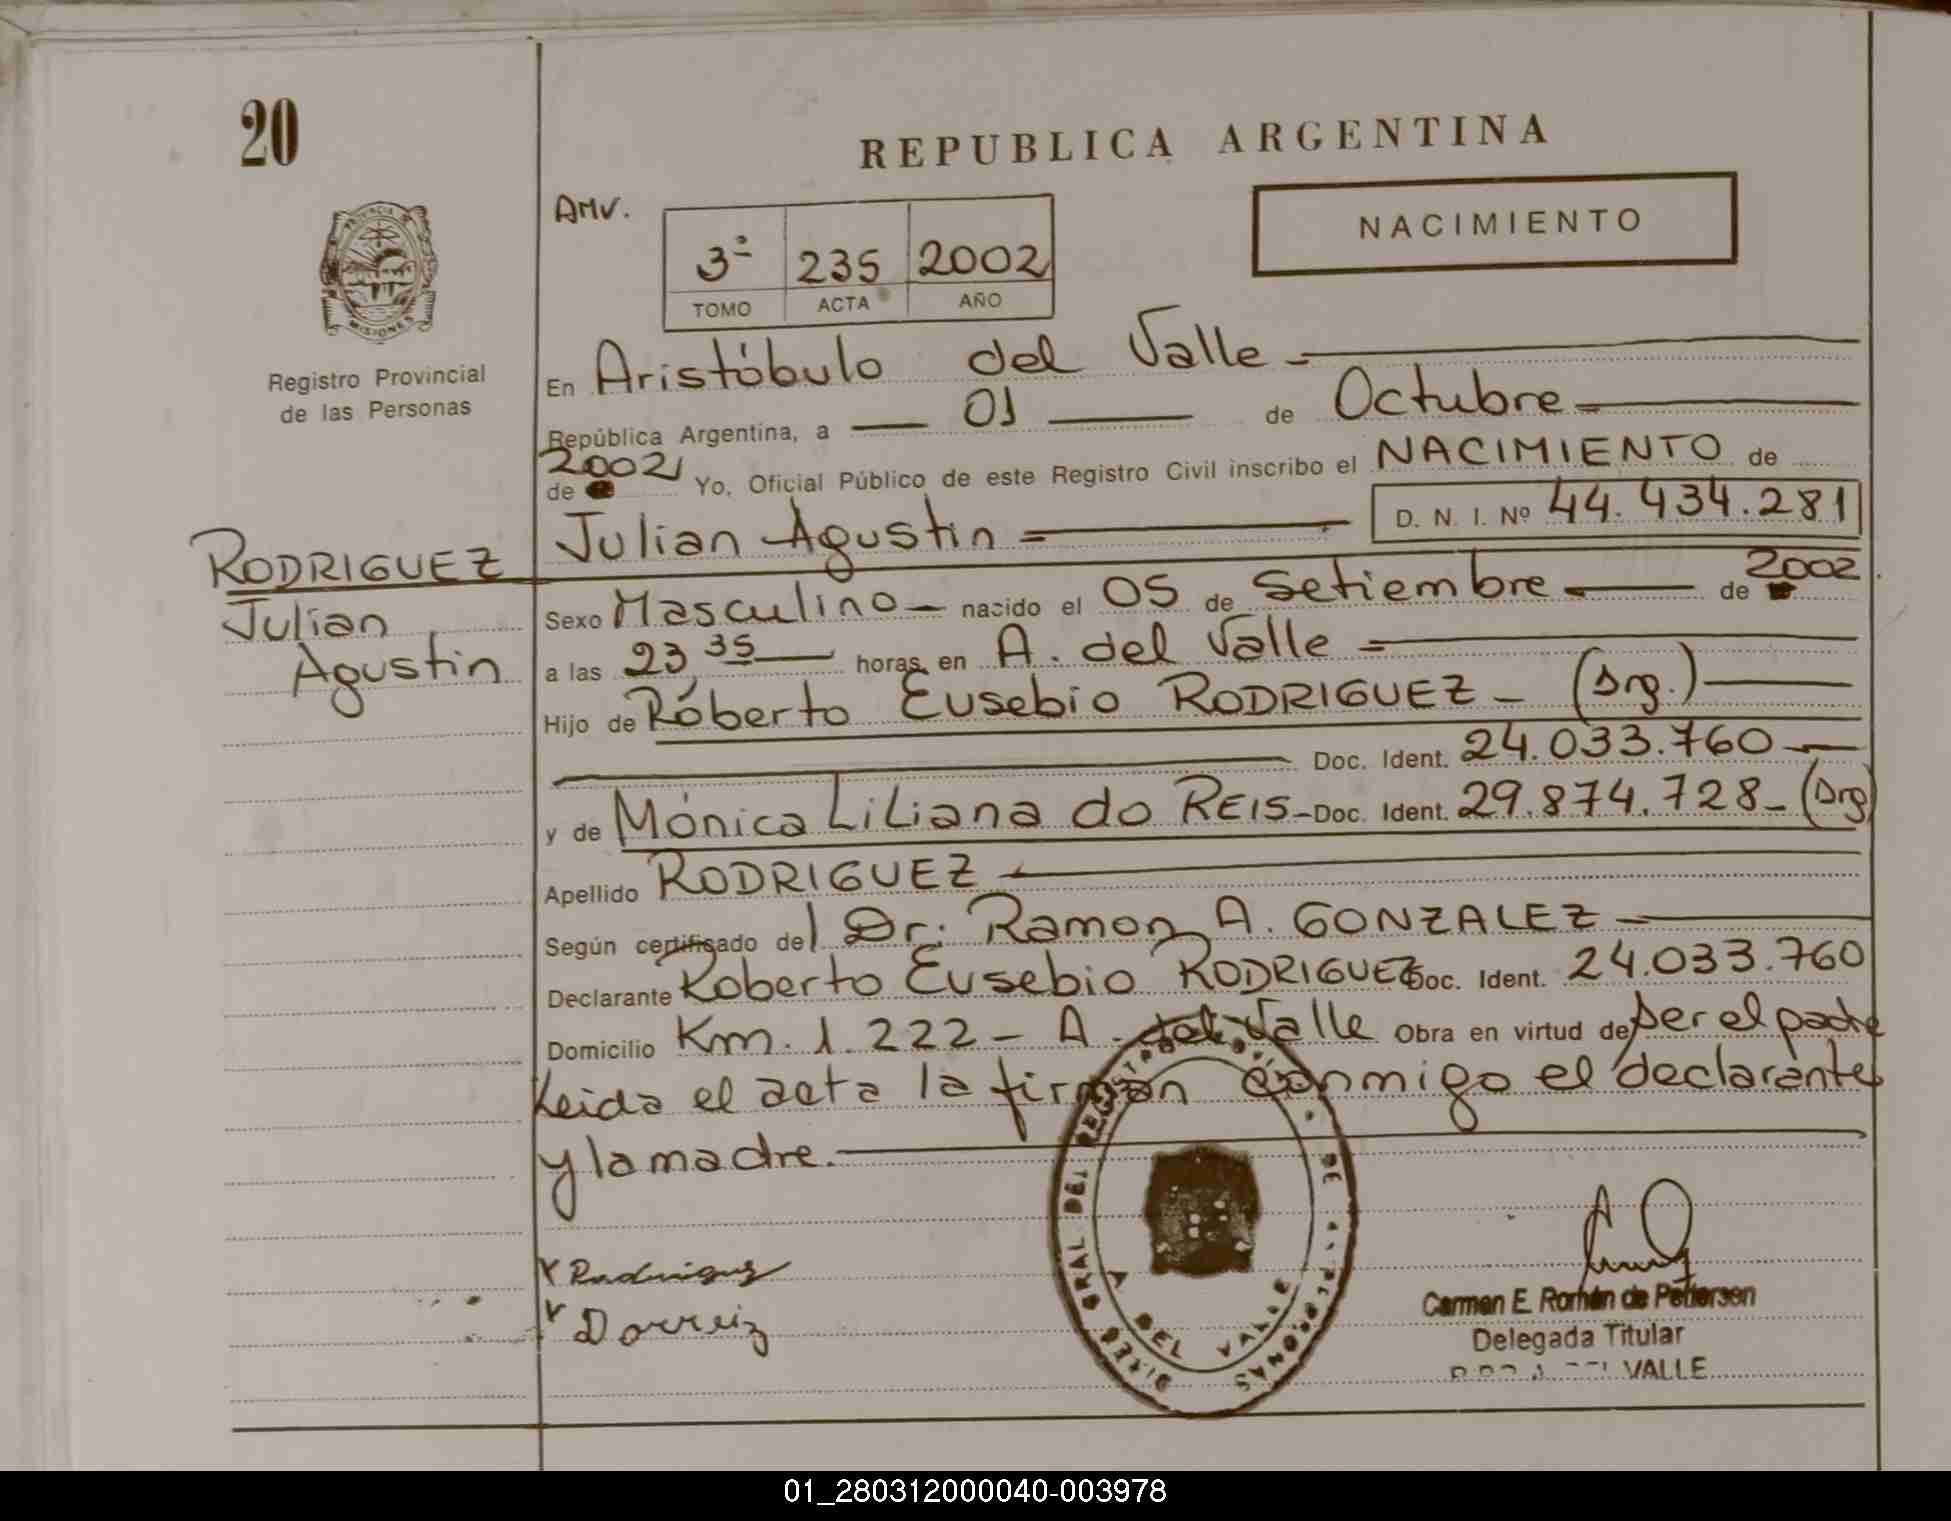 20
REPUBLICA ARGENTINA
AMV.
NACIMIENTO
3º 235 2002
TOMO ACTA AÑO
PROVINCIA
MISIONES
Registro Provincial
de las Personas
En Aristóbulo del Valle
República Argentina, a 01 de Octubre
2002
de Yo, Oficial Público de este Registro Civil inscribo el NACIMIENTO de
Julian Agustin D. N. I. Nº 44.434.281
RODRIGUEZ
Julian
Agustin
2002
Sexo Masculino nacido el 05 de Setiembre de
a las 23,35 horas en A. del Valle
Hijo de Róberto Eusebio RODRIGUEZ - (Arg.)
Doc. Ident. 24.033.760
y de Mónica Liliana do REIS - Doc. Ident. 29.874.728 - (Arg
Apellido RODRIGUEZ
Según certificado del Dr. Ramon A. GONZALEZ
Declarante Roberto Eusebio RODRIGUEZ Doc. Ident. 24.033.760
Domicilio Km. 1.222 - A. del Valle Obra en virtud de ser el padre
Leida el acta la firman conmigo el declarante
y la madre.
Rodriguez
DEL REGISTRO
DE LAS PERSONAS
A DEL VALLE
Carmen E. Román de Pettersen
Delegada Titular
VALLE
01_280312000040-003978